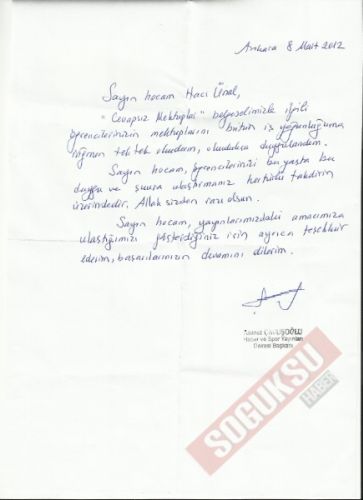 Ankara 8 Mart 2012
Sayın hocam Hacı Ünal,
"Cevapsız Mektuplar" belgeselimizle ilgili
öğrencilerinizin mektuplarını bütün iş yoğunluğuma
rağmen tek tek okudum, okudukça duygulandım.
Sayın hocam, öğrencilerinizi bu yaşta bu
duygu ve şuura ulaştırmanız her türlü takdirin
üzerindedir. Allah sizden razı olsun.
Sayın hocam, yayınlarımızdaki amacımıza
ulaştığımızı gösterdiğiniz için ayrıca teşekkür
ederim, başarılarınızın devamını dilerim.
Ahmet ÇAVUŞOĞLU
Haber ve Spor Yayınları
Dairesi Başkanı
SOGUKSU
HABER